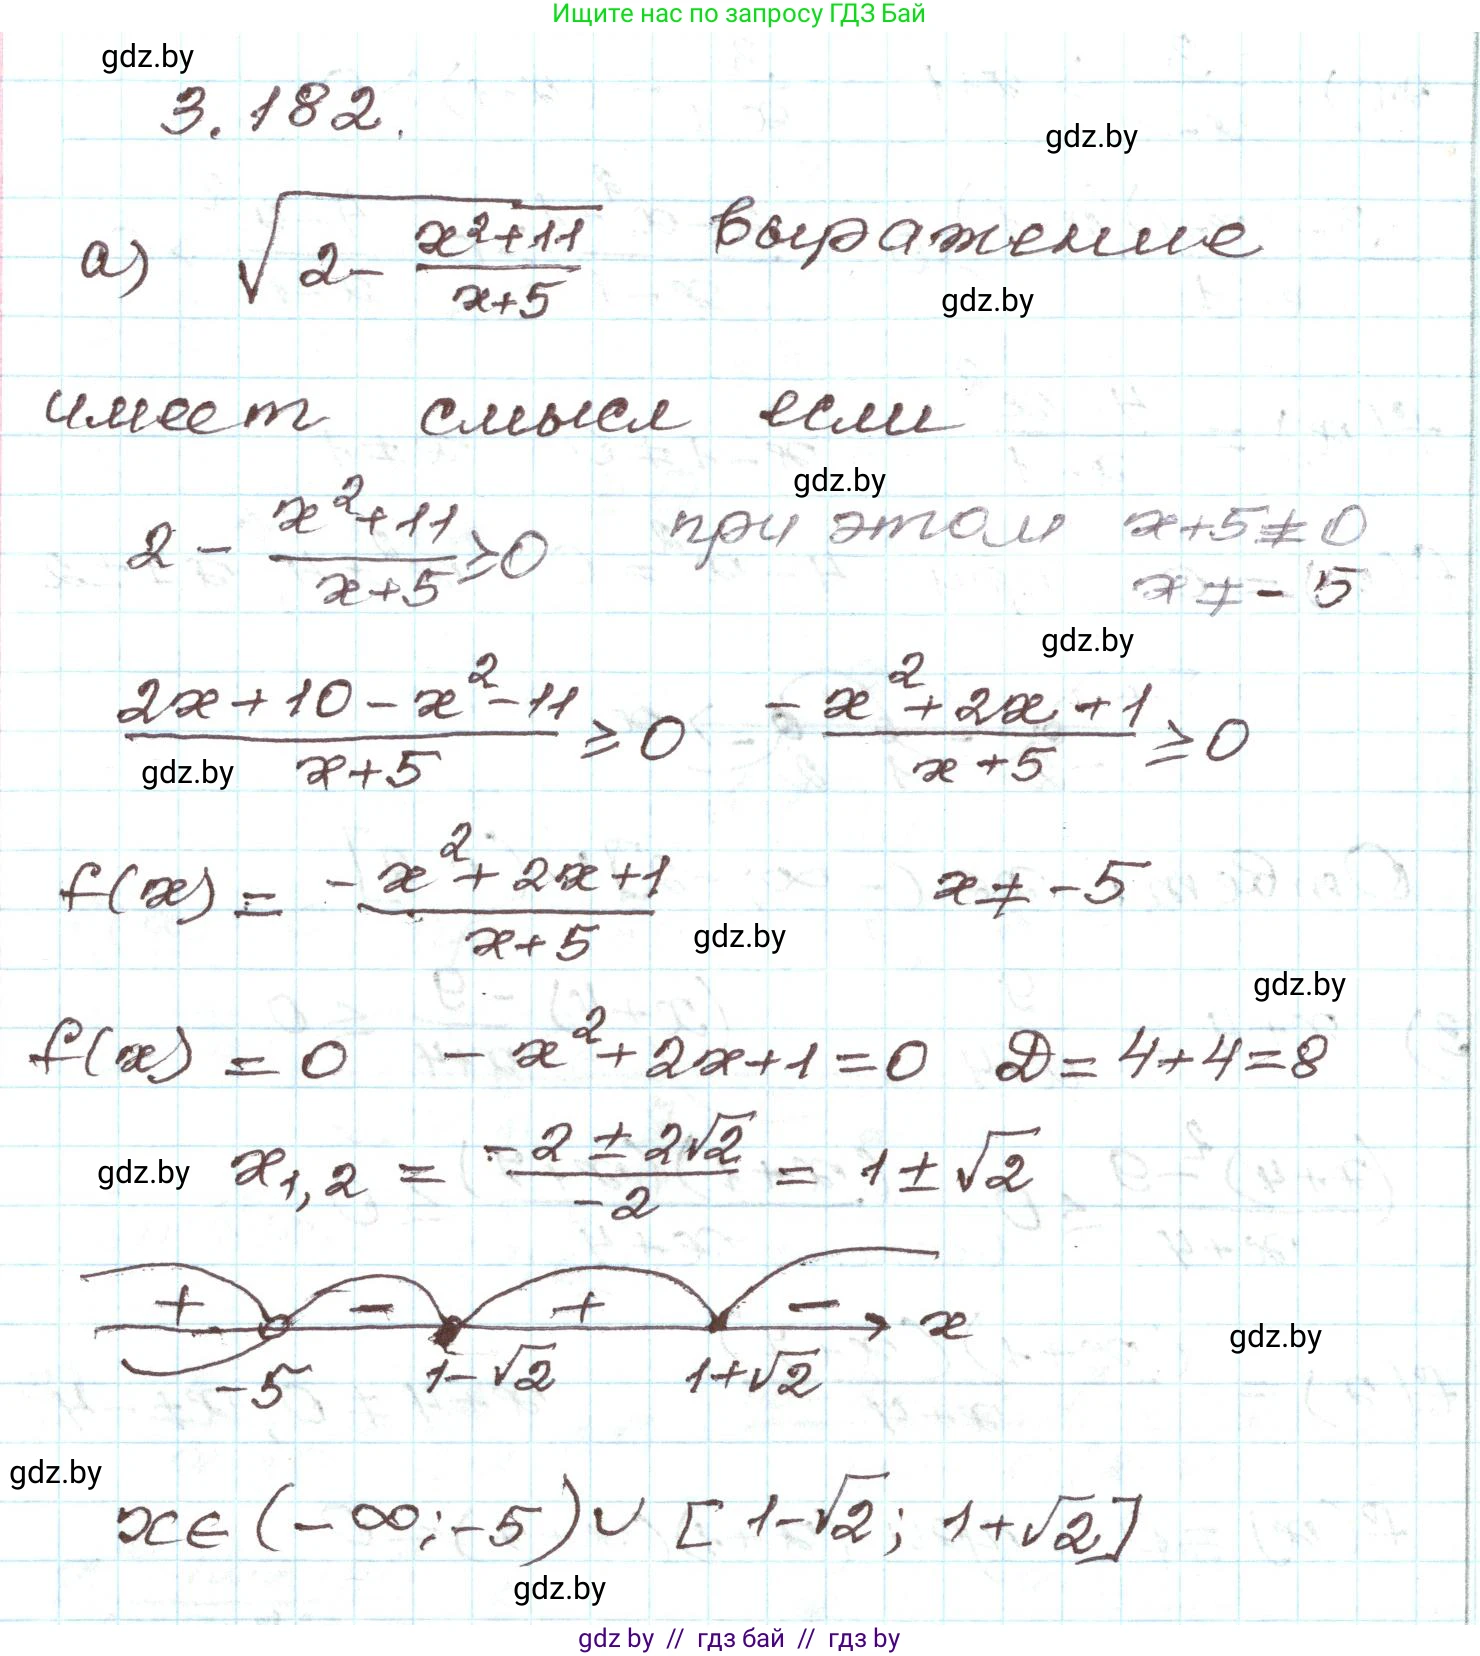 Ищите нас по запросу ГДЗ Бай
gdz.by
3.182.
gdz.by
а) √(2 - (x²+11)/(x+5)) выражение
gdz.by
имеет смысл если
gdz.by
2 - (x²+11)/(x+5) ≥ 0 при этом x+5≠0
x ≠ -5
gdz.by
(2x+10-x²-11)/(x+5) ≥ 0 (-x²+2x+1)/(x+5) ≥ 0
gdz.by
f(x) = (-x²+2x+1)/(x+5) x ≠ -5
gdz.by
gdz.by
f(x) = 0 -x²+2x+1=0 D=4+4=8
gdz.by
x₁,₂ = (-2 ± 2√2)/(-2) = 1 ± √2
+ - + - x
gdz.by
-5 1-√2 1+√2
gdz.by
x ∈ (-∞; -5) ∪ [1-√2; 1+√2]
gdz.by
gdz by // гдз бай // гдз by